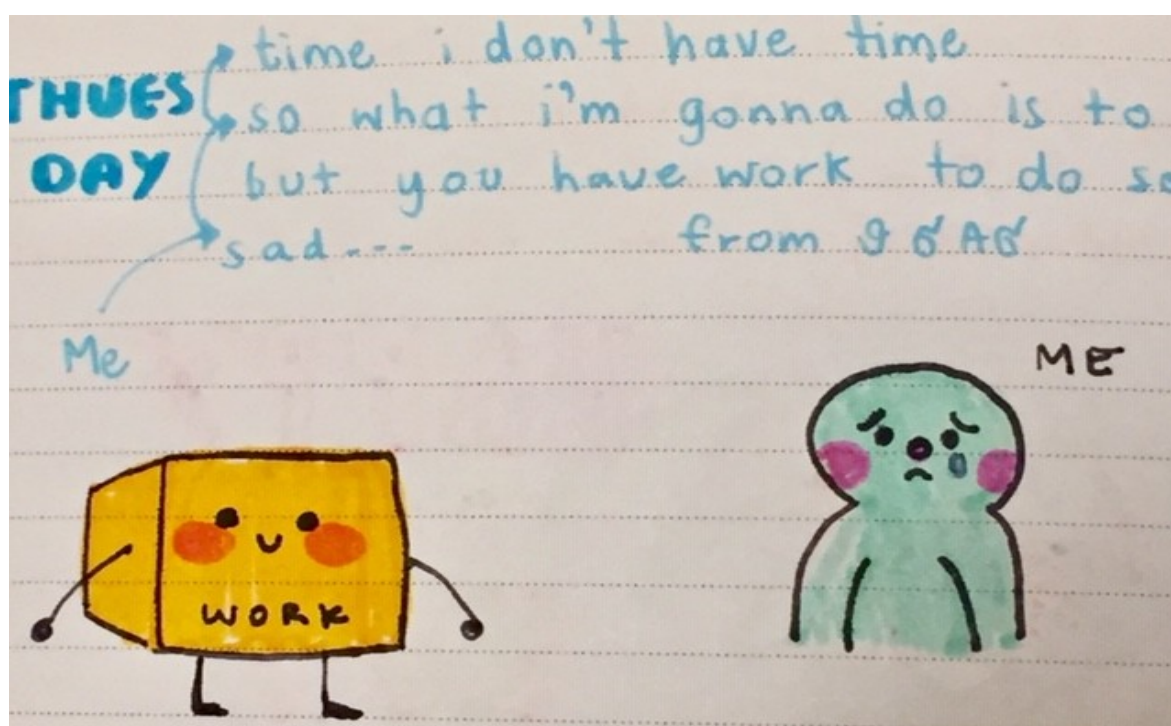 THUES
DAY
time i don't have time
so what i'm gonna do is to
but you have work to do so
sad---
from 9GAG
Me
ME
WORK